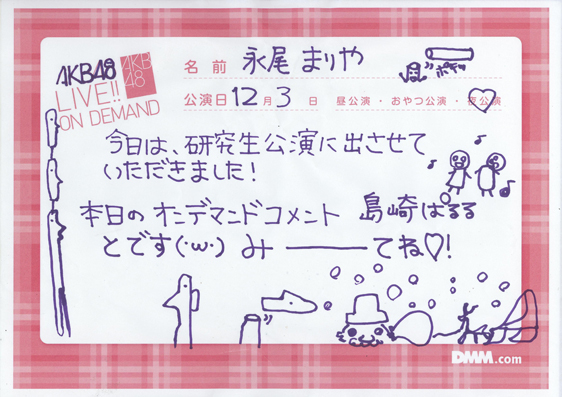 AKB48
AKB
48
LIVE!!
ON DEMAND
名前 永尾 まりや
ポテチ
公演日 12月 3日 昼公演・おやつ公演・夜公演
今日は、研究生公演に出させて
いただきました!
本日のオンデマンドコメント 島崎はるる
とです(·ω·) み ━━━ てね♡!
DMM.com